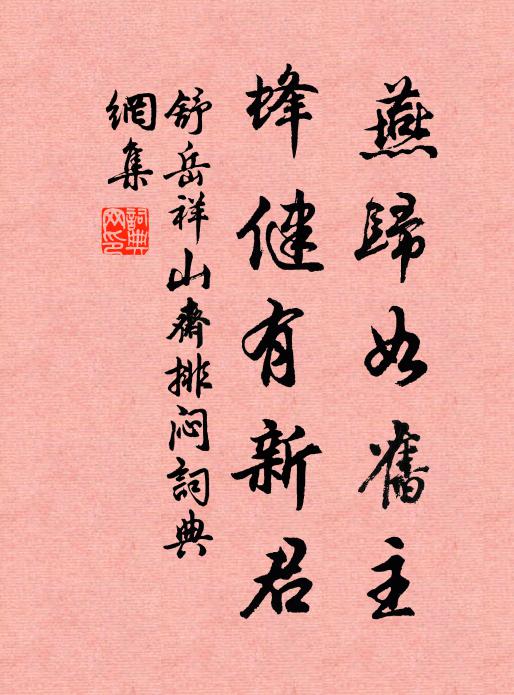 燕歸如舊主
蜂健有新君
舒岳祥山齋排悶詞典
網集
詞典網印